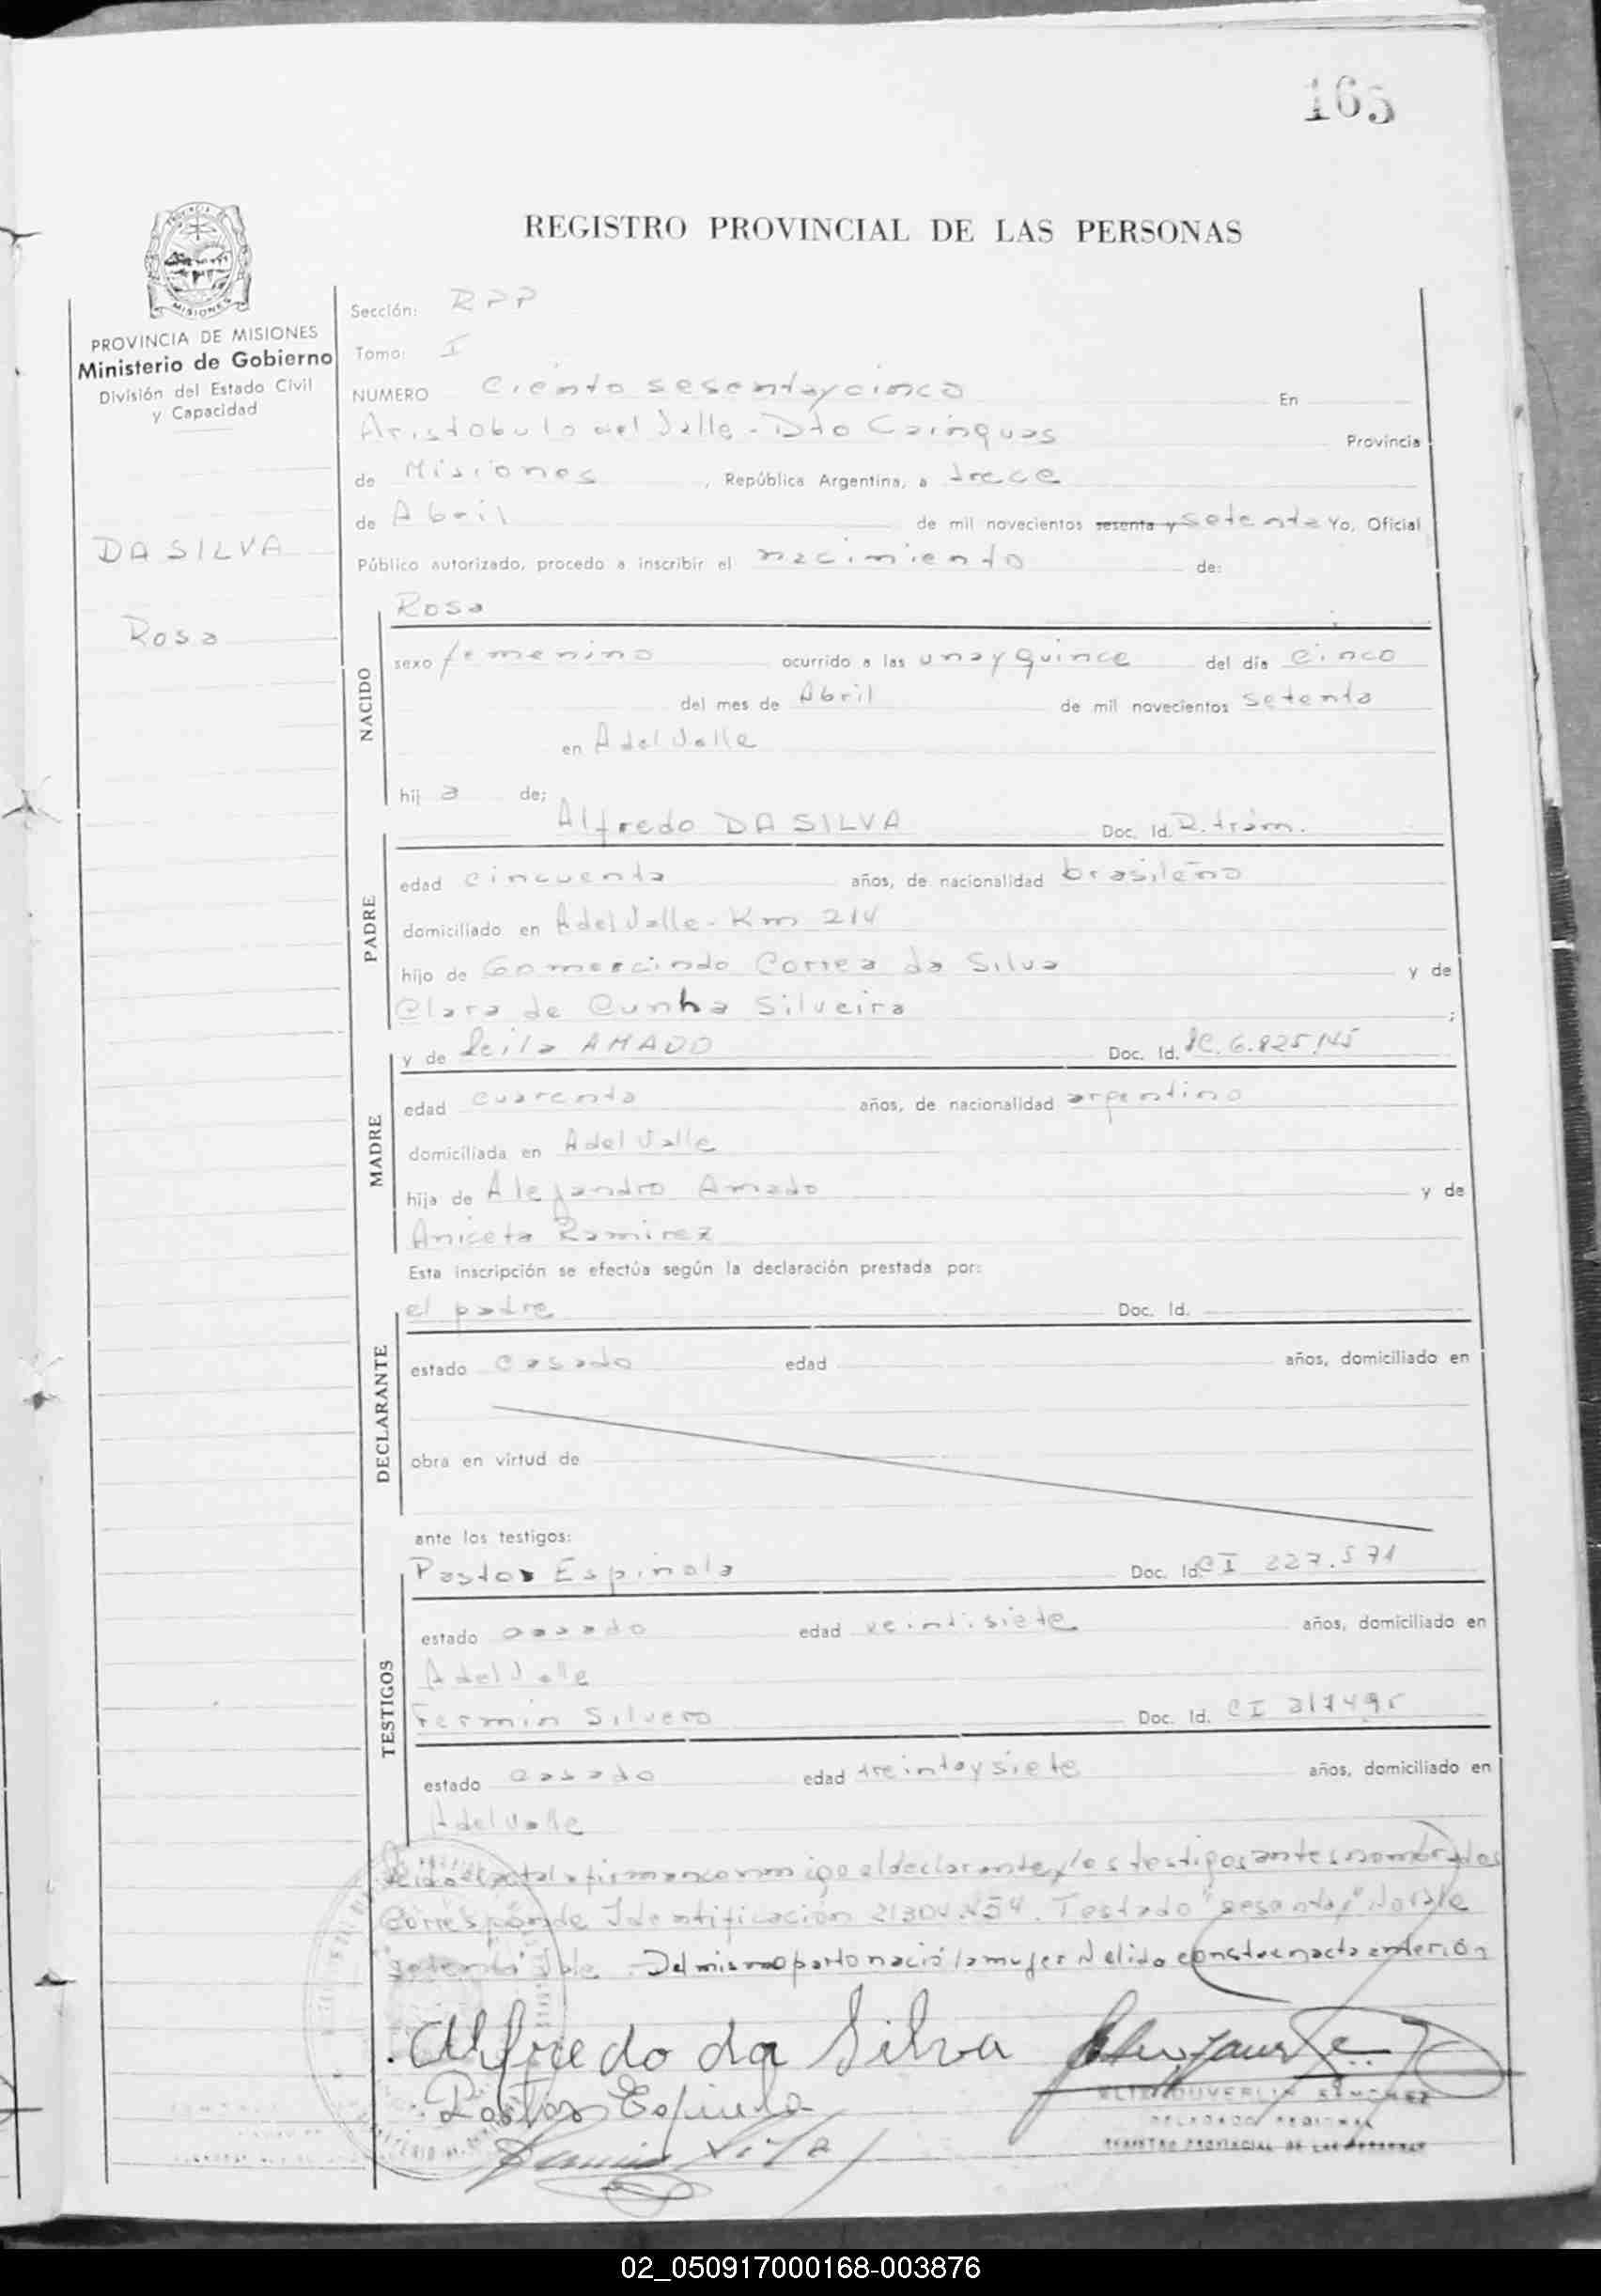 165
REGISTRO PROVINCIAL DE LAS PERSONAS
PROVINCIA DE MISIONES
Ministerio de Gobierno
División del Estado Civil
y Capacidad
DA SILVA
Rosa
Sección: RPP
Tomo: I
NUMERO Ciento sesentaycinco En
Aristobulo del Valle - Dto Cainguas Provincia
de Misiones, República Argentina, a trece
de Abril de mil novecientos sesenta y setenta Yo, Oficial
Público autorizado, procedo a inscribir el nacimiento de:
NACIDO
Rosa
sexo femenino ocurrido a las unay quince del día cinco
del mes de Abril de mil novecientos setenta
en A del Valle
hij a de;
PADRE
Alfredo DA SILVA Doc. Id. R. trám.
edad cincuenta años, de nacionalidad brasileño
domiciliado en A del Valle - Km 214
hijo de Gomercindo Correa da Silva y de
Clara de Cunha Silveira ;
MADRE
y de Leila AMADO Doc. Id. LC. 6.825.145
edad cuarenta años, de nacionalidad argentino
domiciliada en A del Valle
hija de Alejandro Amado y de
Aniceta Ramirez
Esta inscripción se efectúa según la declaración prestada por:
DECLARANTE
el padre Doc. Id.
estado casado edad años, domiciliado en
obra en virtud de
ante los testigos:
TESTIGOS
Pastor Espinola Doc. Id. CI 227.571
estado casado edad veintisiete años, domiciliado en
A del Valle
Fermin Silvero Doc. Id. CI 317495
estado casado edad treintaysiete años, domiciliado en
A del Valle
Leida el acta la firman conmigo el declarante y los testigos antes nombrados
Corresponde Identificación 21304.454. Testado "sesenta y" No vale
setenta Vale. Del mismo parto nació la mujer Nélida consta en acta anterior
Alfredo da Silva
Pastor Espinola
SANCHEZ
DELEGADO REGIONAL
REGISTRO PROVINCIAL DE LAS PERSONAS
02_050917000168-003876